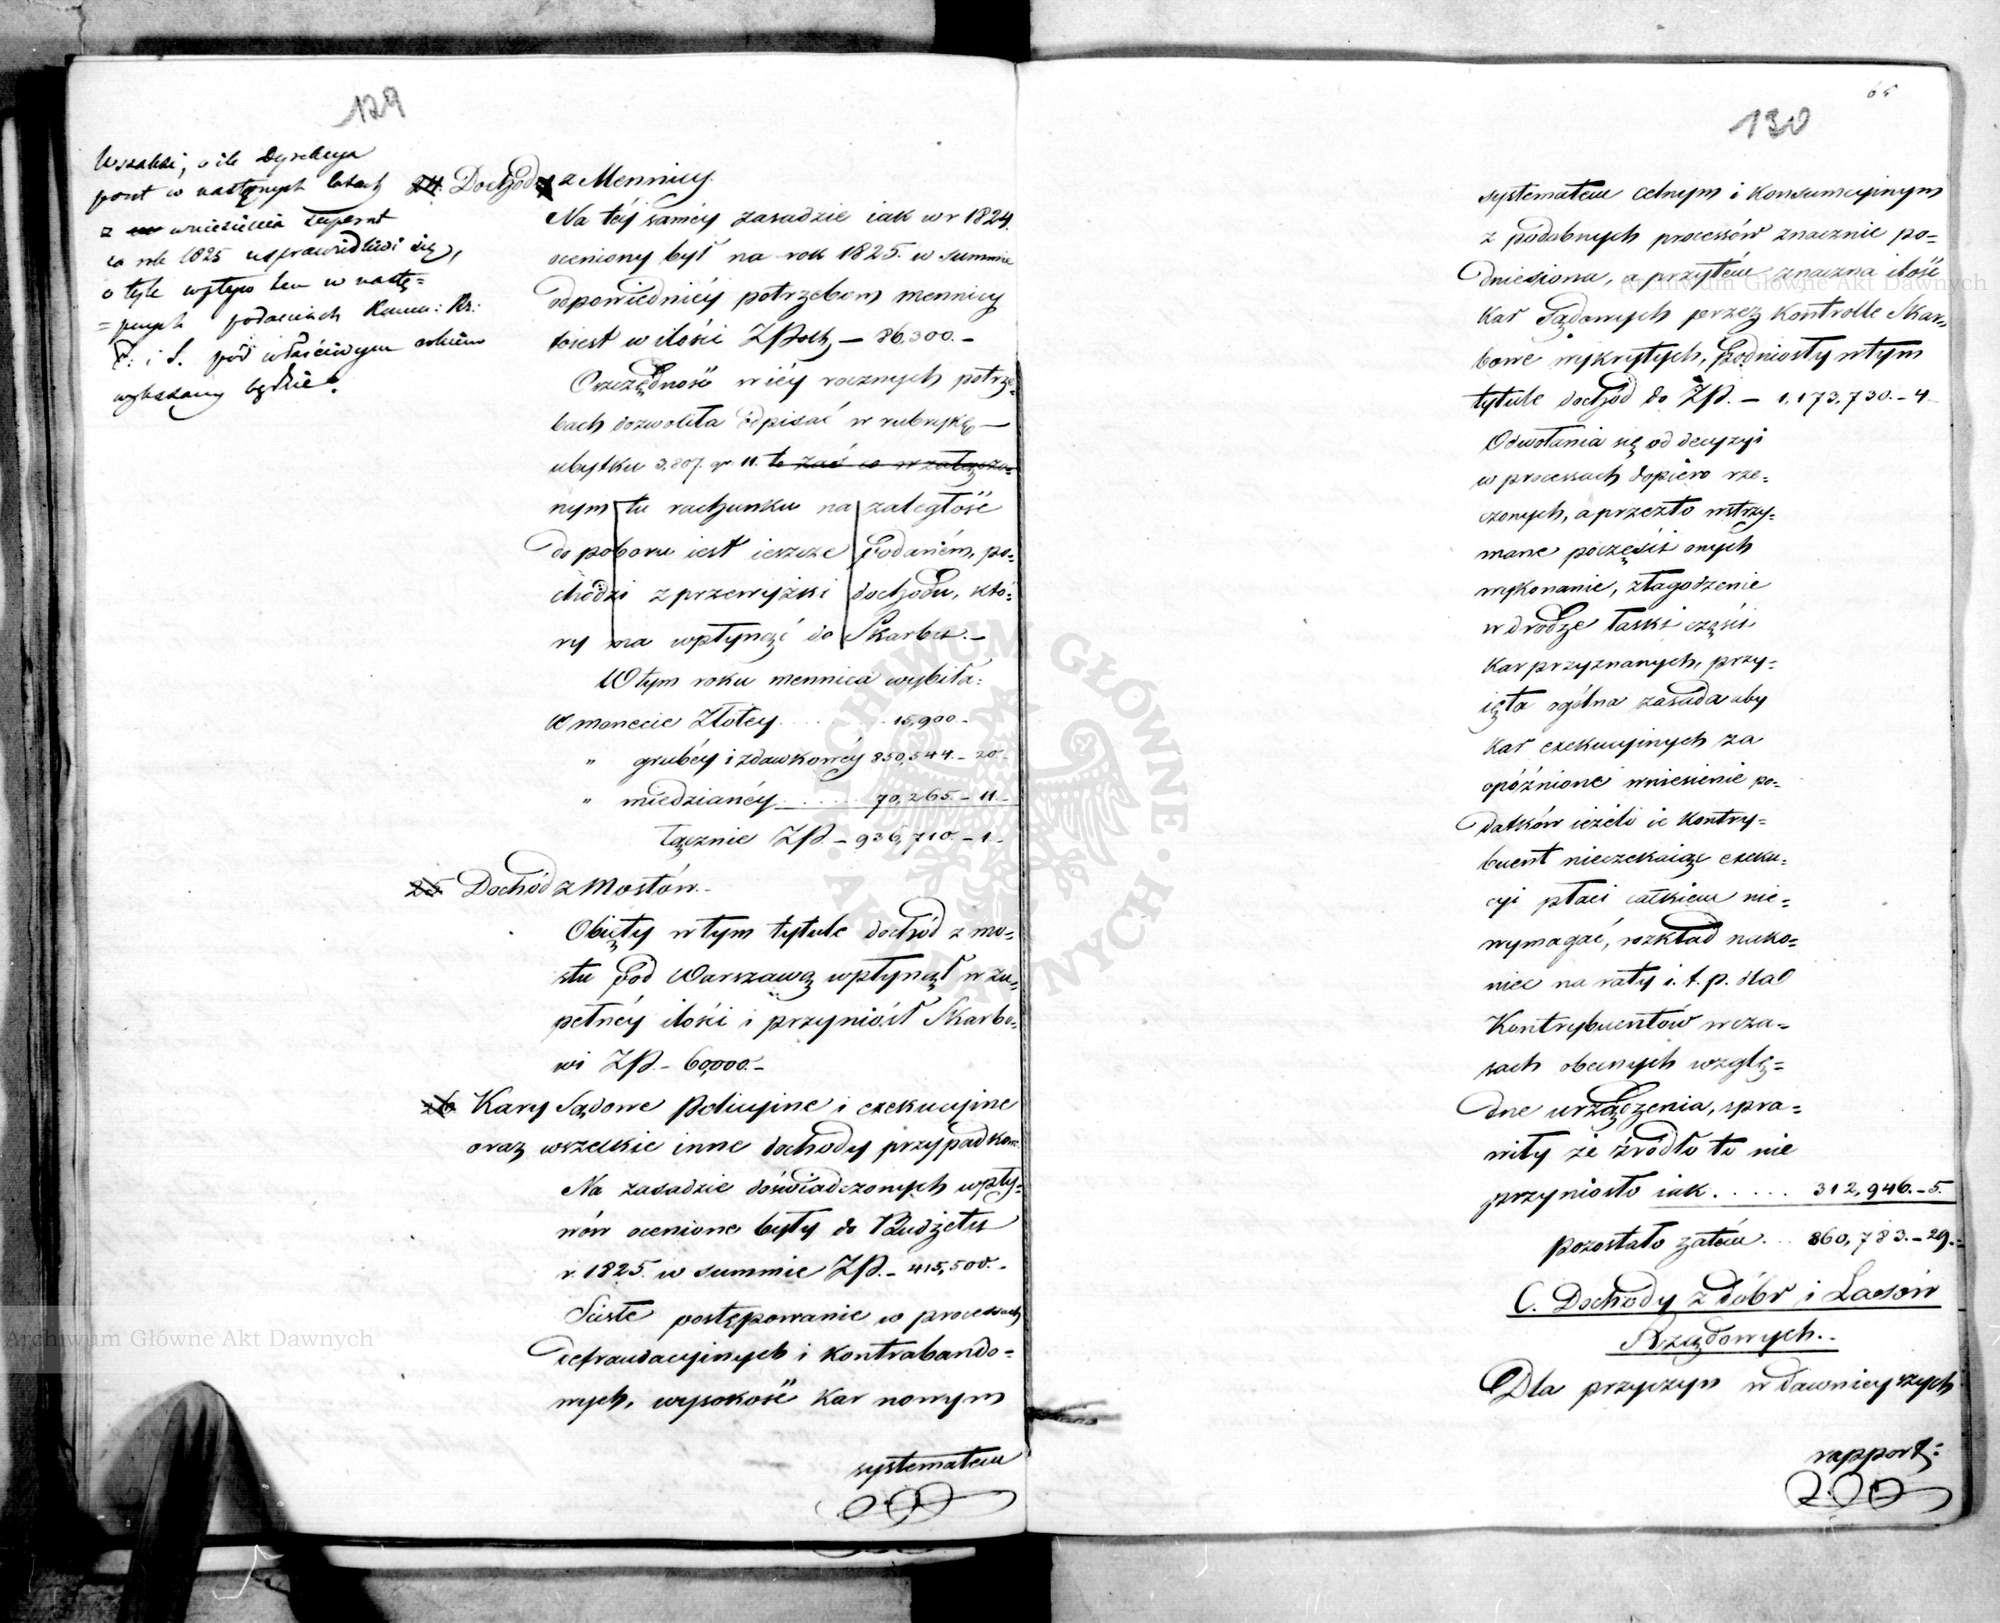 129
Wszakże, o ile Dyrekcya
w następnych latach
z wniesienia
za rok 1825 usprawiedliwi się,
o tyle wpływ ten w nastę=
=pnych podaniach Komm: Rz:
P: i S. pod właściwym rokiem
wykazany będzie.
24. Dochody z Mennicy.
Na téj saméy zasadzie iak w r 1824.
oceniony był na rok 1825. w summie
odpowiednićy potrzebom mennicy
toiest w ilości ZPolch – 86,300.–
Oszczędność w iéy rocznych potrze-
bach dozwoliła odpisać w rubrykę –
ubytku 3,807. gr 11. to zaś co w załączo-
nym tu rachunku na zaległość
do poboru iest ieszcze podaném, po-
chodzi z przewyżki dochodu, któ-
ry ma wpłynąć do Skarbu.–
W tym roku mennica wybiła:
W monecie Złotey . . . . . . 15,900.–
" grubéy i zdawkowéy 850,544.– 20.
" miedzianéy . . . . . 70,265.– 11.–
łącznie ZP. – 936,710.– 1.–
25. Dochód z Mostów.–
Obięty w tym tytule dochód z mo-
stu pod Warszawą wpłynął w zu-
pełnéy ilości i przyniósł Skarbo-
wi ZP.– 60,000.–
26. Kary Sądowe Policyine i exekucyine
oraz wszelkie inne dochody przypadkowe
Na zasadzie doświadczonych wpły-
wów ocenione były do Budżetu
r. 1825. w summie ZP.– 415,500.–
Ścisłe postępowanie w processach
defraudacyinych i kontrabando-
wych, wysokość kar nowym
systematem
65
130
systematem celnym i konsumcyinym
z podobnych processów znacznie po-
dniesiona, a przytém znaczna ilość
kar Sądowych przez Kontrolle Skar-
bowe wykrytych, podniosły w tym
tytule dochód do ZP. – 1,173,730.– 4
Odwołania się od decyzyi
w processach dopiero rze-
czonych, a przezto wstrzy-
mane poczęści onych
wykonanie, złagodzenie
w drodze łaski części
kar przyznanych, przy-
ięta ogólna zasada aby
kar exekucyinych za
opóźnione wniesienie po-
datków ieżeli ie kontry-
buent nieczekaiąc exeku-
cyi płaci całkiem nie-
wymagać, rozkład nako-
niec na raty i. t. p. dla
Kontrybuentów w cza-
sach obecnych wzglę-
dne urządzenia, spra-
wiły że źródło to nie
przyniosło iak . . . . . 312,946.– 5.
pozostało zatém . . 860,783.– 29.–
C. Dochody z dóbr i Lasów
Rządowych.–
Dla przyczyn w dawnieyszych
rapport:
Archiwum Główne Akt Dawnych
Archiwum Główne Akt Dawnych